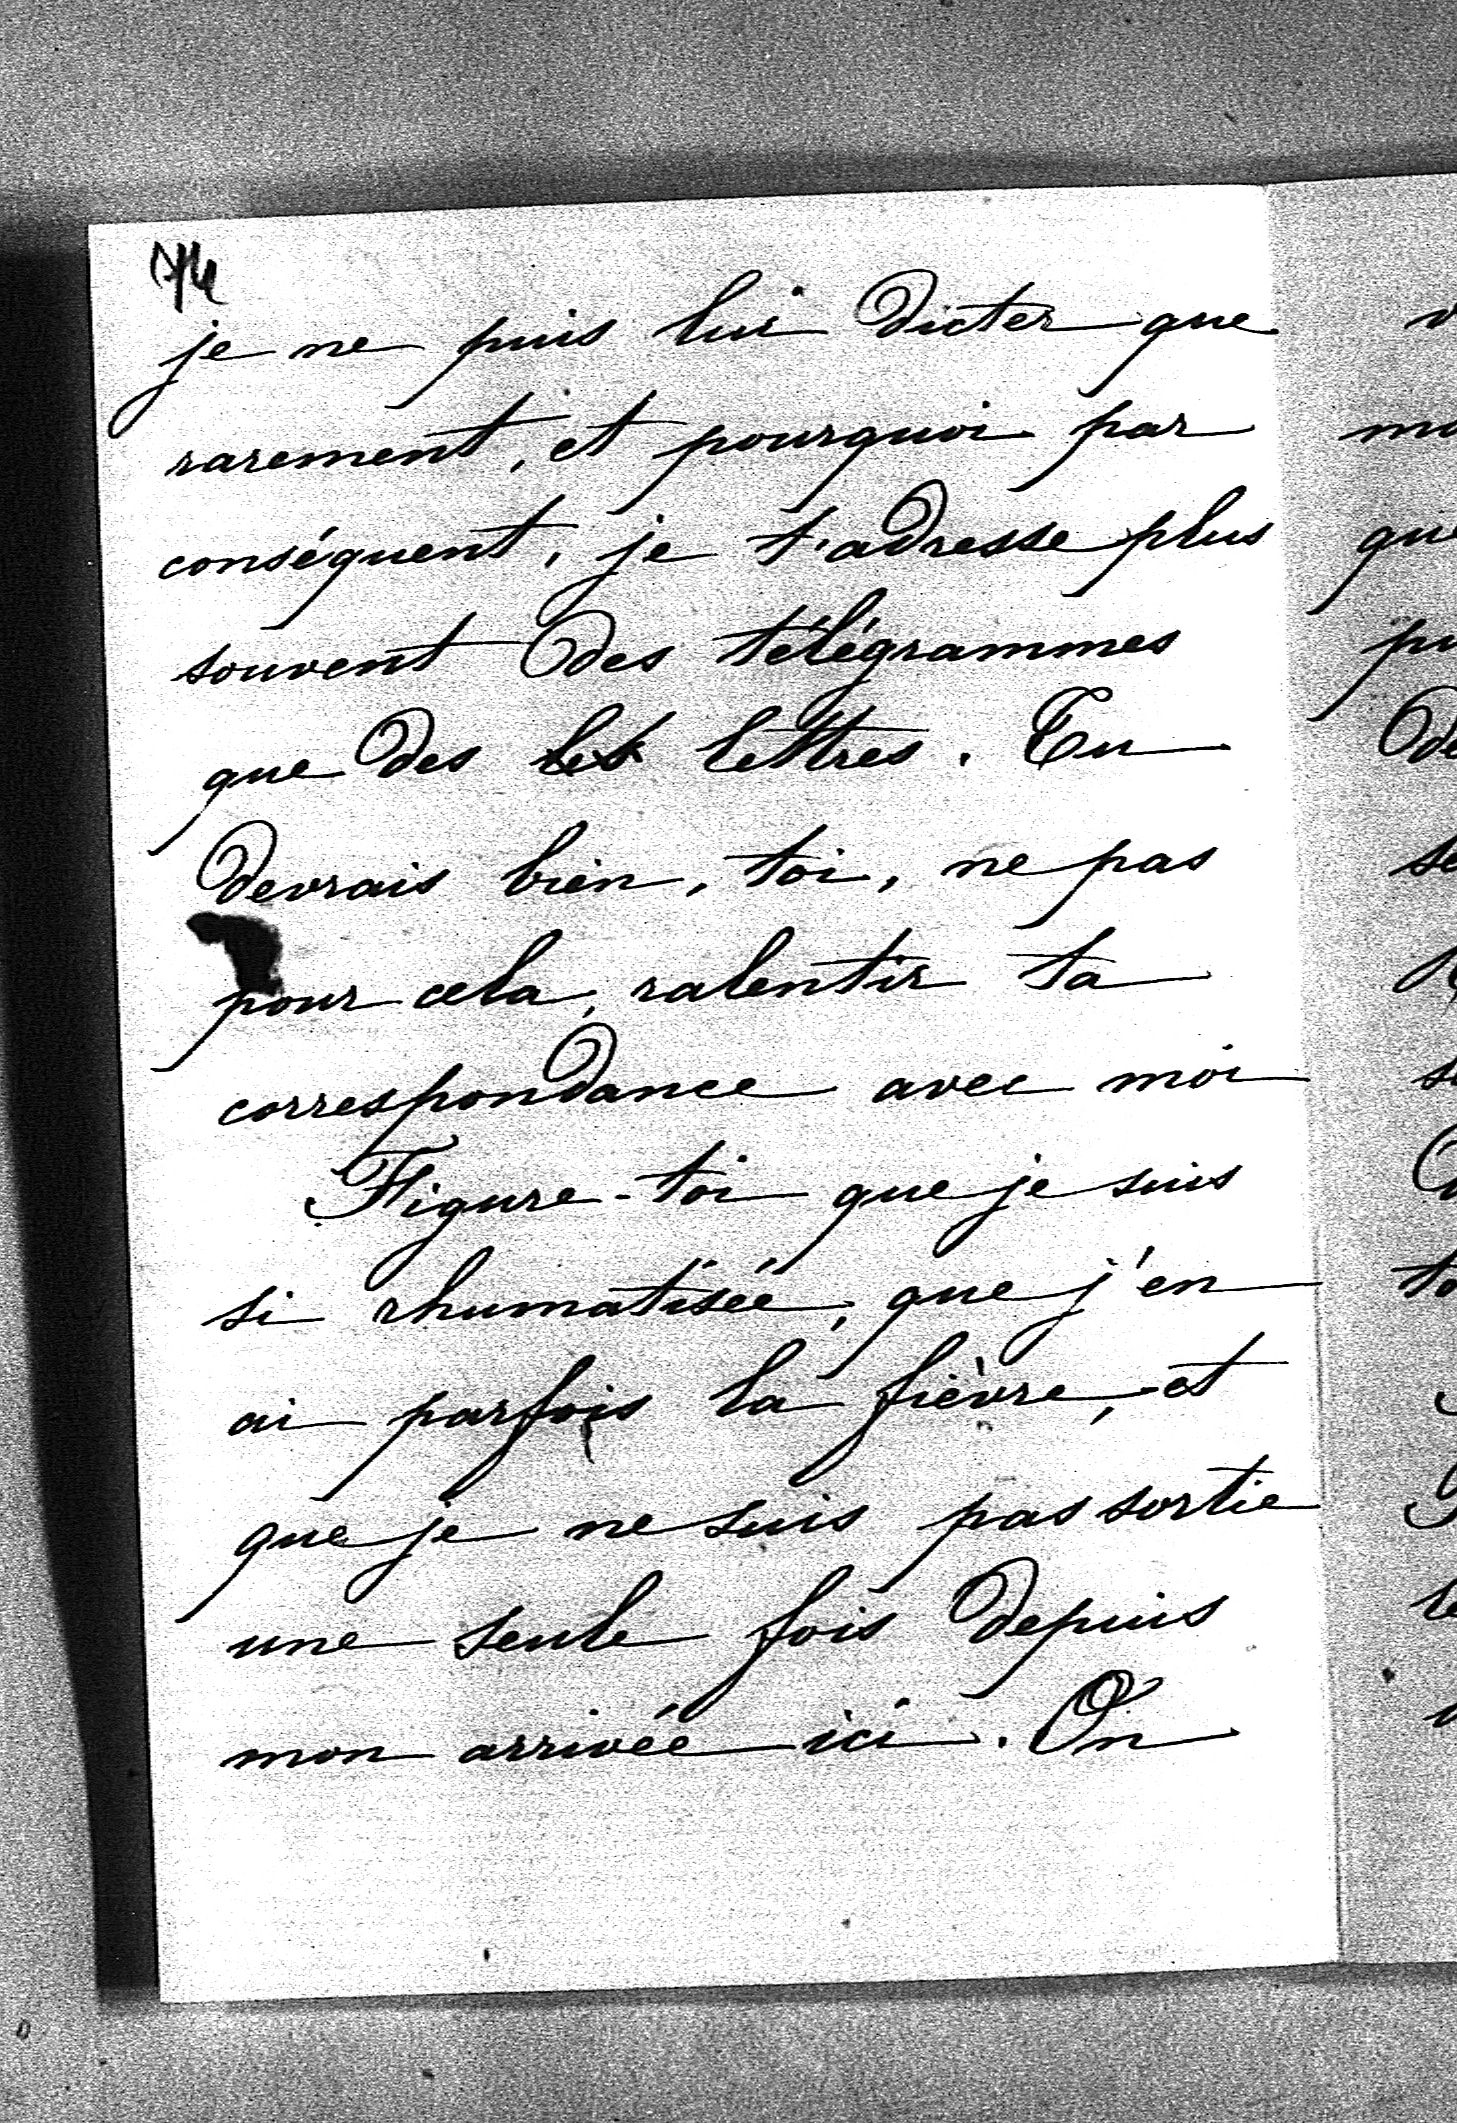 je ne puis lui dicter que
rarement, et pourquoi par
conséquent, je t'adresse plus
souvent des télégrammes
que des let lettres. Tu
devrais bien, toi, ne pas
pour cela, ralentir ta
correspondance avec moi
Figure-toi que je suis
si rhumatisée, que j'en
ai parfois la fièvre, et
que je ne suis pas sortie
une seule fois depuis
mon arrivée ici. On